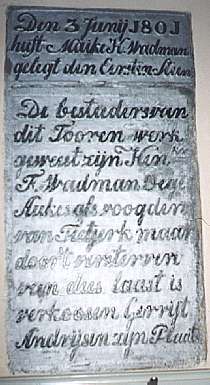 Den 3 Junij 1801
heft Maike K. Wadman
gelegt den Eersten Steen
De besteders van
dit Tooren werk
geweest zijn Hen
F. Wadman Deije
Aukes als voogden
van Tietjerk maar
door't versterven
van dees laast is
verkossen Gerrijt
Andrijsen zijn Plaats